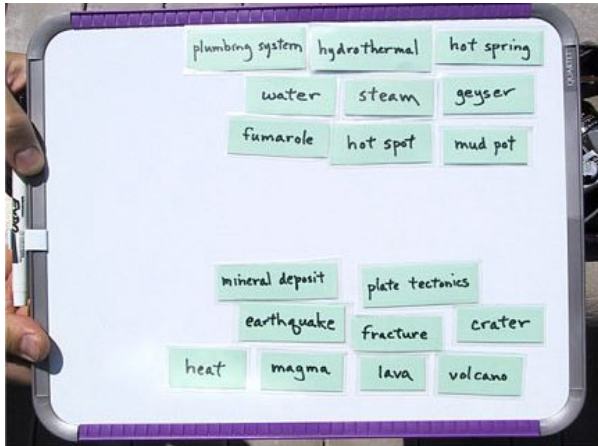 plumbing system hydrothermal hot spring
water steam geyser
fumarole hot spot mud pot
mineral deposit plate tectonics
earthquake fracture crater
heat magma lava volcano
QUARTET
EXPO